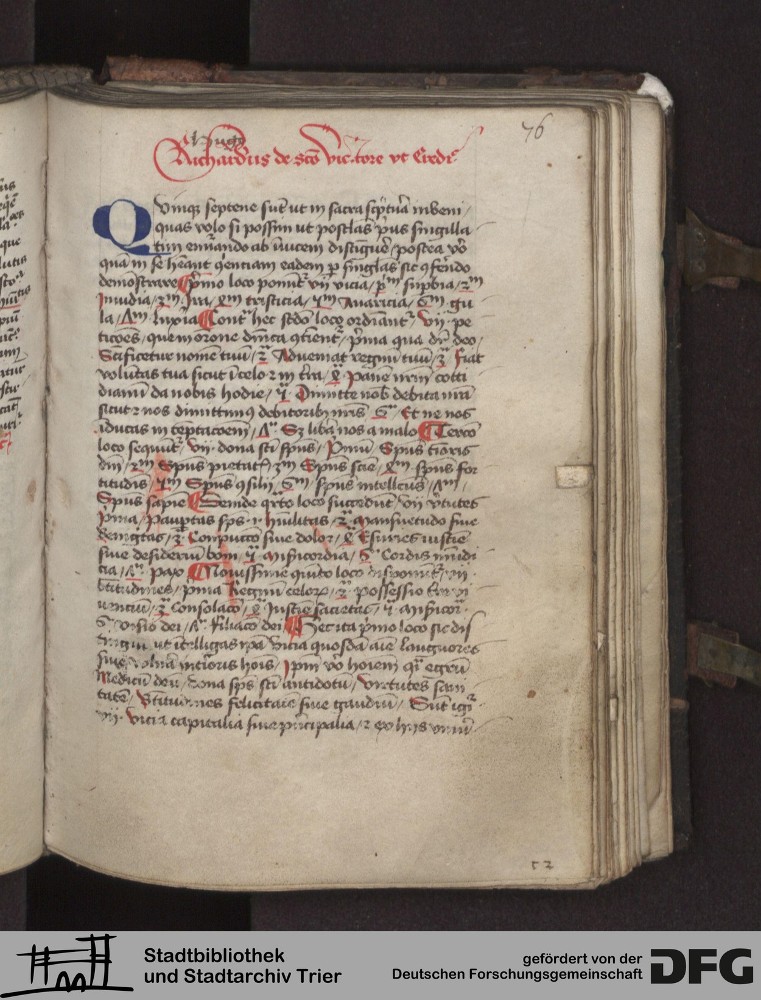 76
al' hugo
Richardus de sco Victore vt credit
Quinqz septene sut ut in sacra scptura inveni
quas volo si possum ut postlas prius singilla
tim enumando ab inuicem distingue / postea vo
qua in se heant qientiam eadem p singlas sic gferendo
demonstrare Primo loco ponutr vii vicia / pm supbia / 2m
Inuidia / 3m Ira / 4m tristicia / 5m Auaricia / 6m gu
la / 7m luxia Conta hec scdo loco ordiantr vii pe
ticoes / que in orone dnica qtientr / pma qua dr deo /
Scificetur nome tuu / 2a Adueniat regnu tuu / 3a Fiat
voluntas tua sicut i celo z in tra / 4a Pane nrm cotti
dianu da nobis hodie / 5a Dimitte nob debita nra
sicut z nos dimittimus debitoribus nris 6a Et ne nos
iducas in teptacoem / 7a Sz liba nos a malo Tercio
loco sequutr vii dona sti spus / Pmu Spus tioris
dni / 2m Spus pietatis / 3m Spus scie / 4m spus for
titudis / 5m Spus qsilii / 6m spus intellcus / 7m
Spus sapie Deinde qrto loco succedunt vii vtutes
Pma / Paupertas sps i humilitas / 2a Mansuetudo siue
benignitas / 3a Conpuccio siue dolor / 4a Esuries iusticie
siue desideriu bonu / 5a Misericordia / 6a Cordis mudi
cia / 7a Pax Nouissime quito loco disponutr vii
btitudines / pma Regnu celorum / 2a possessio terre
uiuenciu / 3a Consolaco / 4a Justicie sacietas / 5a Misericor
6a Visio dei / 7a Filiaco dei Hec ita pmo loco sic dis
tingui ut itelligas ipa vicia quosda aie languores
siue vulnera interioris hois / Ipm vo hoiem qi egrum
Medicu deu / dona sps sti antidotu / Virtutes sani
tate / Btitudines felicitatis siue gaudiu / Sut igitur
vii vicia capitalia siue principalia / z ex hiis
52
Stadtbibliothek
und Stadtarchiv Trier
gefördert von der
Deutschen Forschungsgemeinschaft
DFG